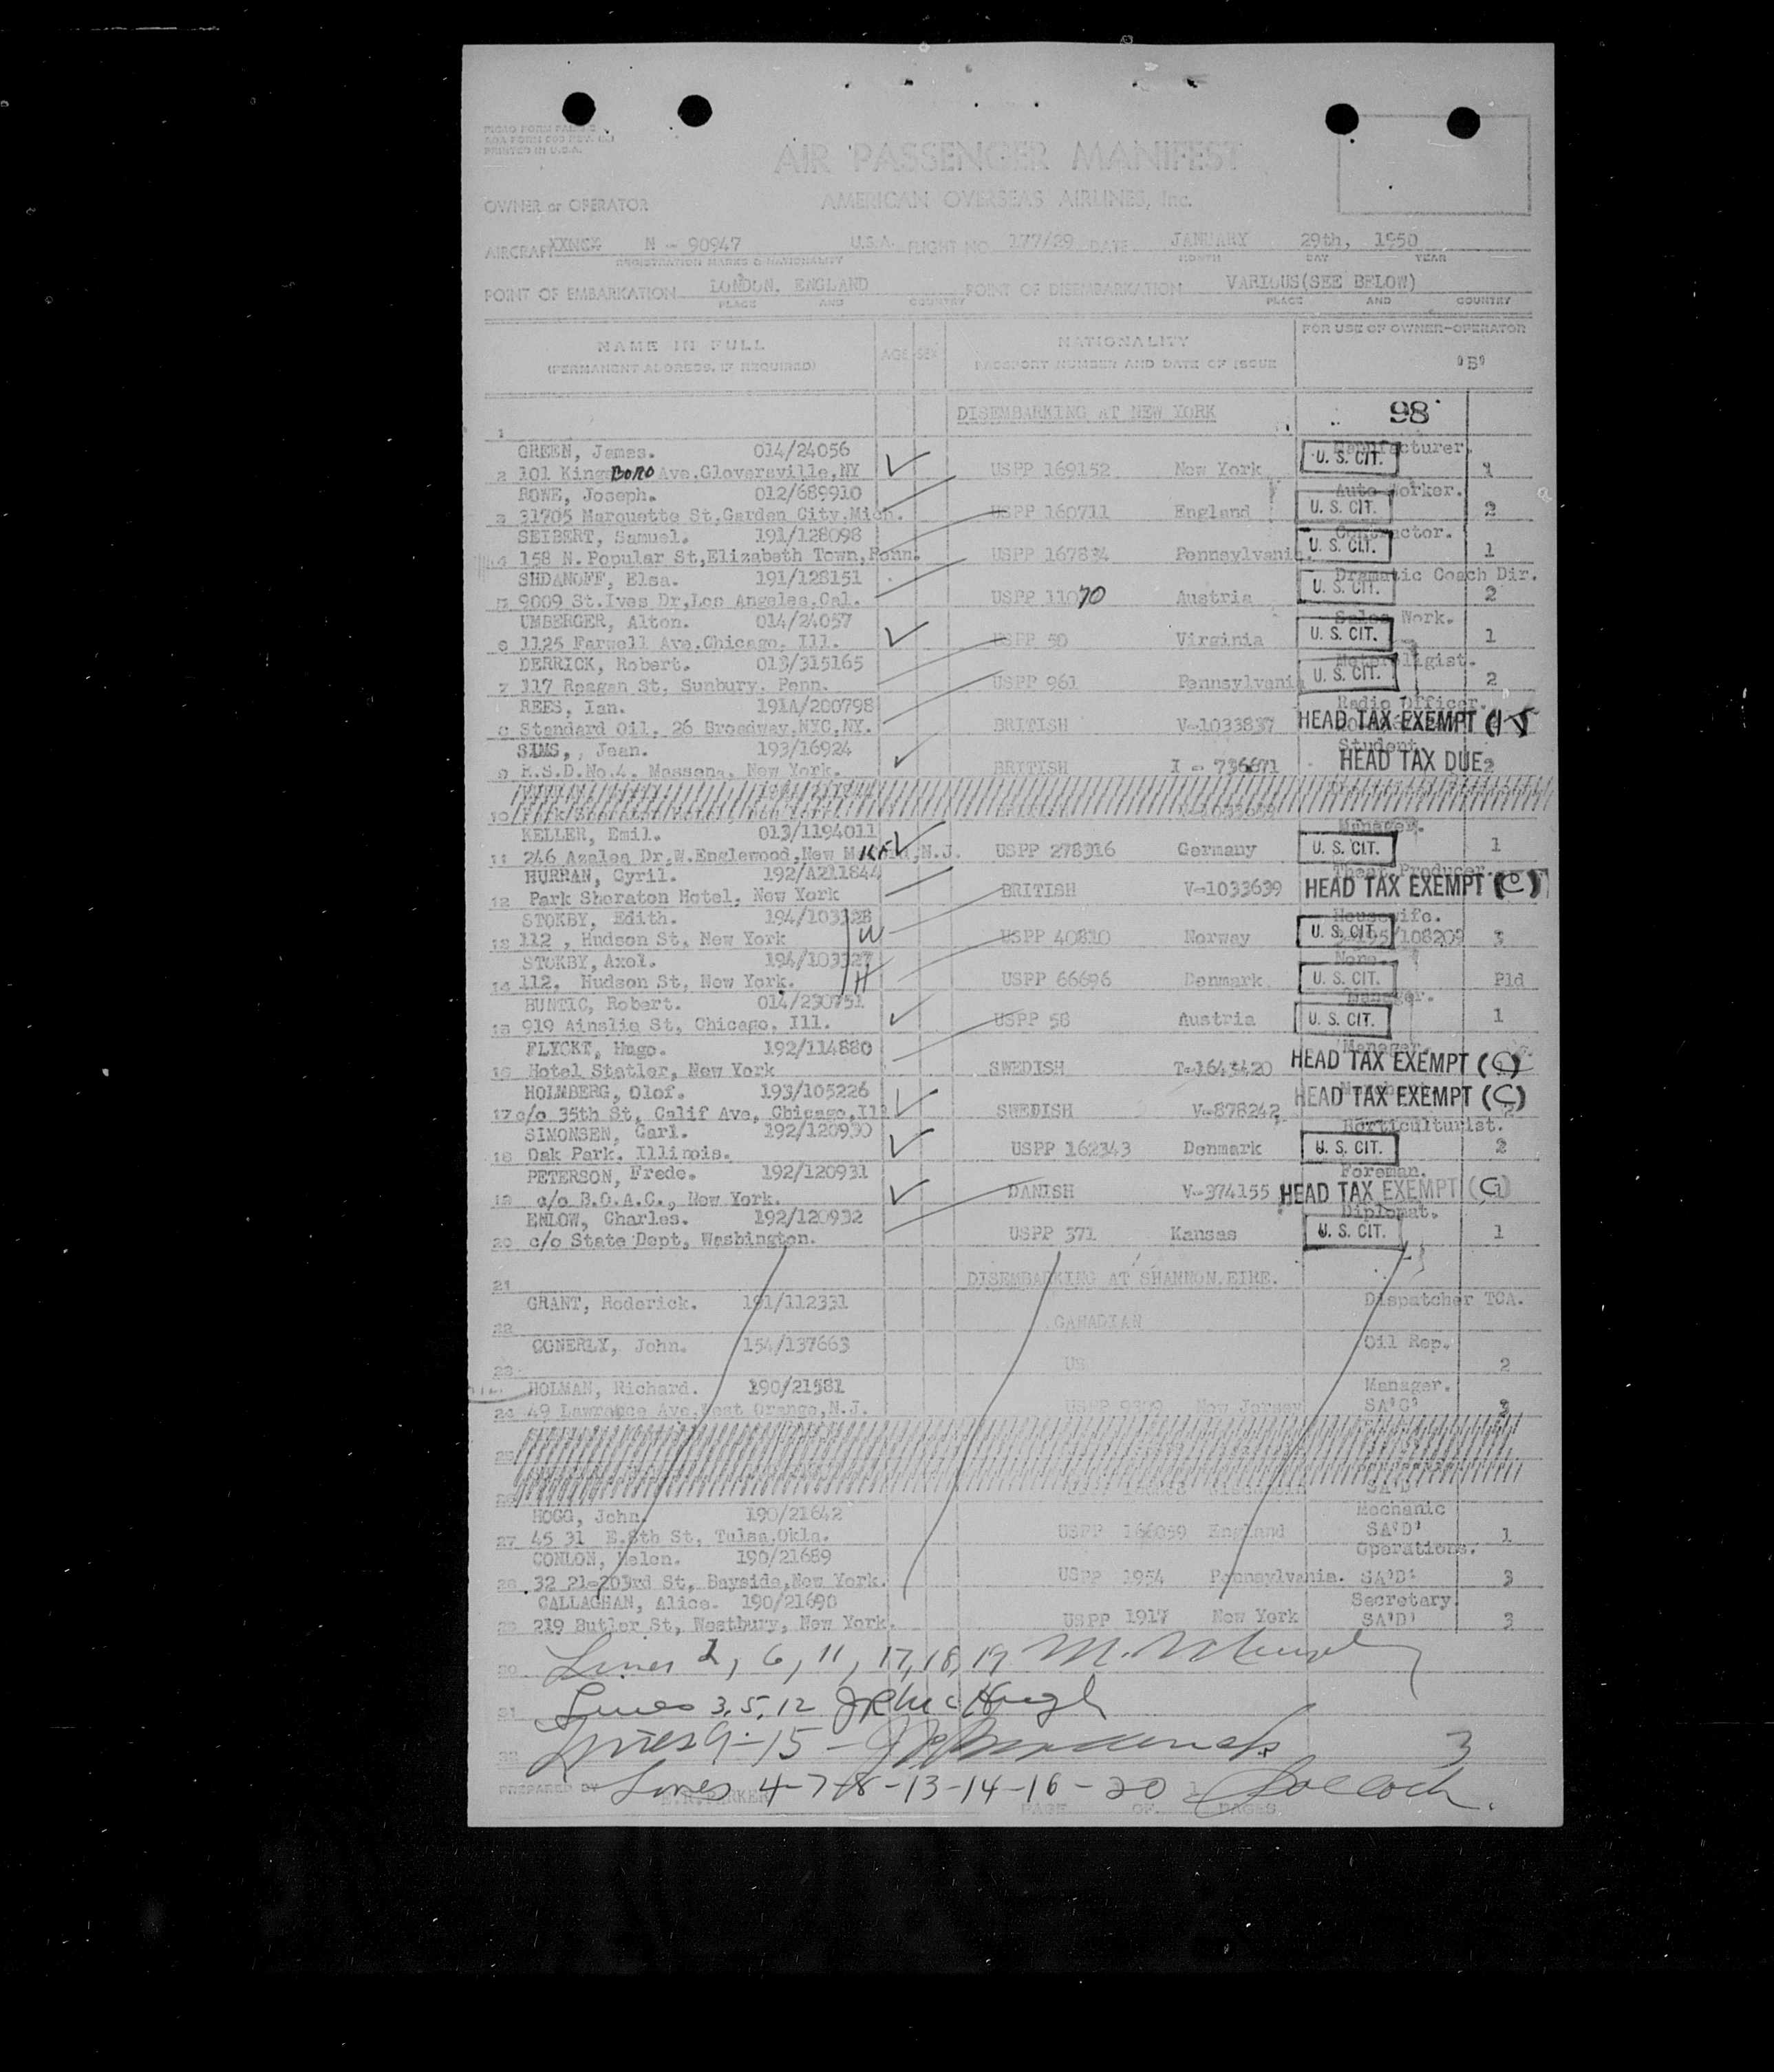 PRINTED IN U.S.A.
AIR PASSENGER MANIFEST
OWNER or OPERATOR AMERICAN OVERSEAS AIRLINES, Inc.
AIRCRAFT N - 90947 U.S.A. FLIGHT NO. 177/29 DATE JANUARY 29th, 1950
REGISTRATION MARKS & NATIONALITY MONTH DAY YEAR
POINT OF EMBARKATION LONDON, ENGLAND POINT OF DISEMBARKATION VARIOUS(SEE BELOW)
PLACE AND COUNTRY PLACE AND COUNTRY
NAME IN FULL AGE SEX NATIONALITY FOR USE OF OWNER-OPERATOR
(PERMANENT ADDRESS, IF REQUIRED) PASSPORT NUMBER AND DATE OF ISSUE
DISEMBARKING AT NEW YORK 98
1
GREEN, James. 014/24056 Manufacturer.
2 101 KingsBORO Ave,Gloversville,NY USPP 169152 New York U. S. CIT. 1
ROWE, Joseph. 012/689910 Auto Worker.
3 31705 Marquette St,Garden City,Mich. USPP 160711 England U. S. CIT. 2
SEIBERT, Samuel. 191/128098 Contractor.
4 158 N.Popular St,Elizabeth Town,Penn. USPP 167834 Pennsylvania. U. S. CIT. 1
SHDANOFF, Elsa. 191/128151 Dramatic Coach Dir.
5 9009 St.Ives Dr,Los Angeles,Cal. USPP 11070 Austria U. S. CIT. 2
UMBERGER, Alton. 014/24057 Sales Work.
6 1125 Farwell Ave,Chicago, Ill. USPP 50 Virginia U. S. CIT. 1
DERRICK, Robert. 013/315165
7 117 Reagan St, Sunbury, Penn. USPP 961 Pennsylvania U. S. CIT. 2
REES, Ian. 191A/200798 Radio Officer.
8 Standard Oil, 26 Broadway,NYC,NY. BRITISH V-1033837 HEAD TAX EXEMPT
SIMS, Jean. 193/16924 Student
9 R.S.D.No.4, Massena, New York. BRITISH I - 736871 HEAD TAX DUE 2
10
KELLER, Emil. 013/1194011 Manager.
11 246 Azalea Dr,W.Englewood,New N.J. USPP 278916 Germany U. S. CIT. 1
HURRAN, Cyril. 192/A211844 Theat.Producer.
12 Park Sheraton Hotel, New York BRITISH V-1033639 HEAD TAX EXEMPT (C)
STOKBY, Edith. 194/103328 Housewife.
13 112 , Hudson St, New York W USPP 40810 Norway U. S. CIT. 3
STOKBY, Axel. 194/103327 None.
14 112, Hudson St, New York. H USPP 66696 Denmark U. S. CIT. Pld
BUNTIC, Robert. 014/230751 Manager.
15 919 Ainslie St, Chicago, Ill. USPP 58 Austria U. S. CIT. 1
FLYCKT, Hugo. 192/114880 Manager.
16 Hotel Statler, New York SWEDISH T-1643420 HEAD TAX EXEMPT (C)
HOLMBERG, Olof. 193/105226
17 c/o 35th St, Calif Ave, Chicago,Ill SWEDISH V-878242 HEAD TAX EXEMPT (C)
SIMONSEN, Carl. 192/120930 Horticulturist.
18 Oak Park, Illinois. USPP 162343 Denmark U. S. CIT. 2
PETERSON, Frede. 192/120931 Foreman.
19 c/o B.O.A.C., New York. DANISH V-374155 HEAD TAX EXEMPT
ENLOW, Charles. 192/120932 Diplomat.
20 c/o State Dept, Washington. USPP 371 Kansas U. S. CIT. 1
21 DISEMBARKING AT SHANNON,EIRE.
GRANT, Roderick. 191/112331 Dispatcher TCA.
22 CANADIAN
CONERLY, John. 154/137663 Oil Rep.
23 US 2
HOLMAN, Richard. 190/21581 Manager.
24 49 Lawrence Ave,West Orange,N.J. USPP 9309 New Jersey SA'C' 3
25
26
HOGG, John. 190/21642 Mechanic
27 45 31 E.8th St, Tulsa,Okla. USPP 166059 England SA'D' 1
CONLON, Helen. 190/21689 Operations.
28 32 21-203rd St, Bayside,New York. USPP 1954 Pennsylvania. SA'D' 3
CALLAGHAN, Alice. 190/21690 Secretary
29 219 Butler St, Westbury, New York. USPP 1917 New York SA'D' 3
30 Lines 2, 6, 11, 17, 18, 19
31 Lines 3, 5, 12
32 Lines 9-15 - 3
PREPARED BY Lines 4-7-8-13-14-16-20
PAGE OF PAGES